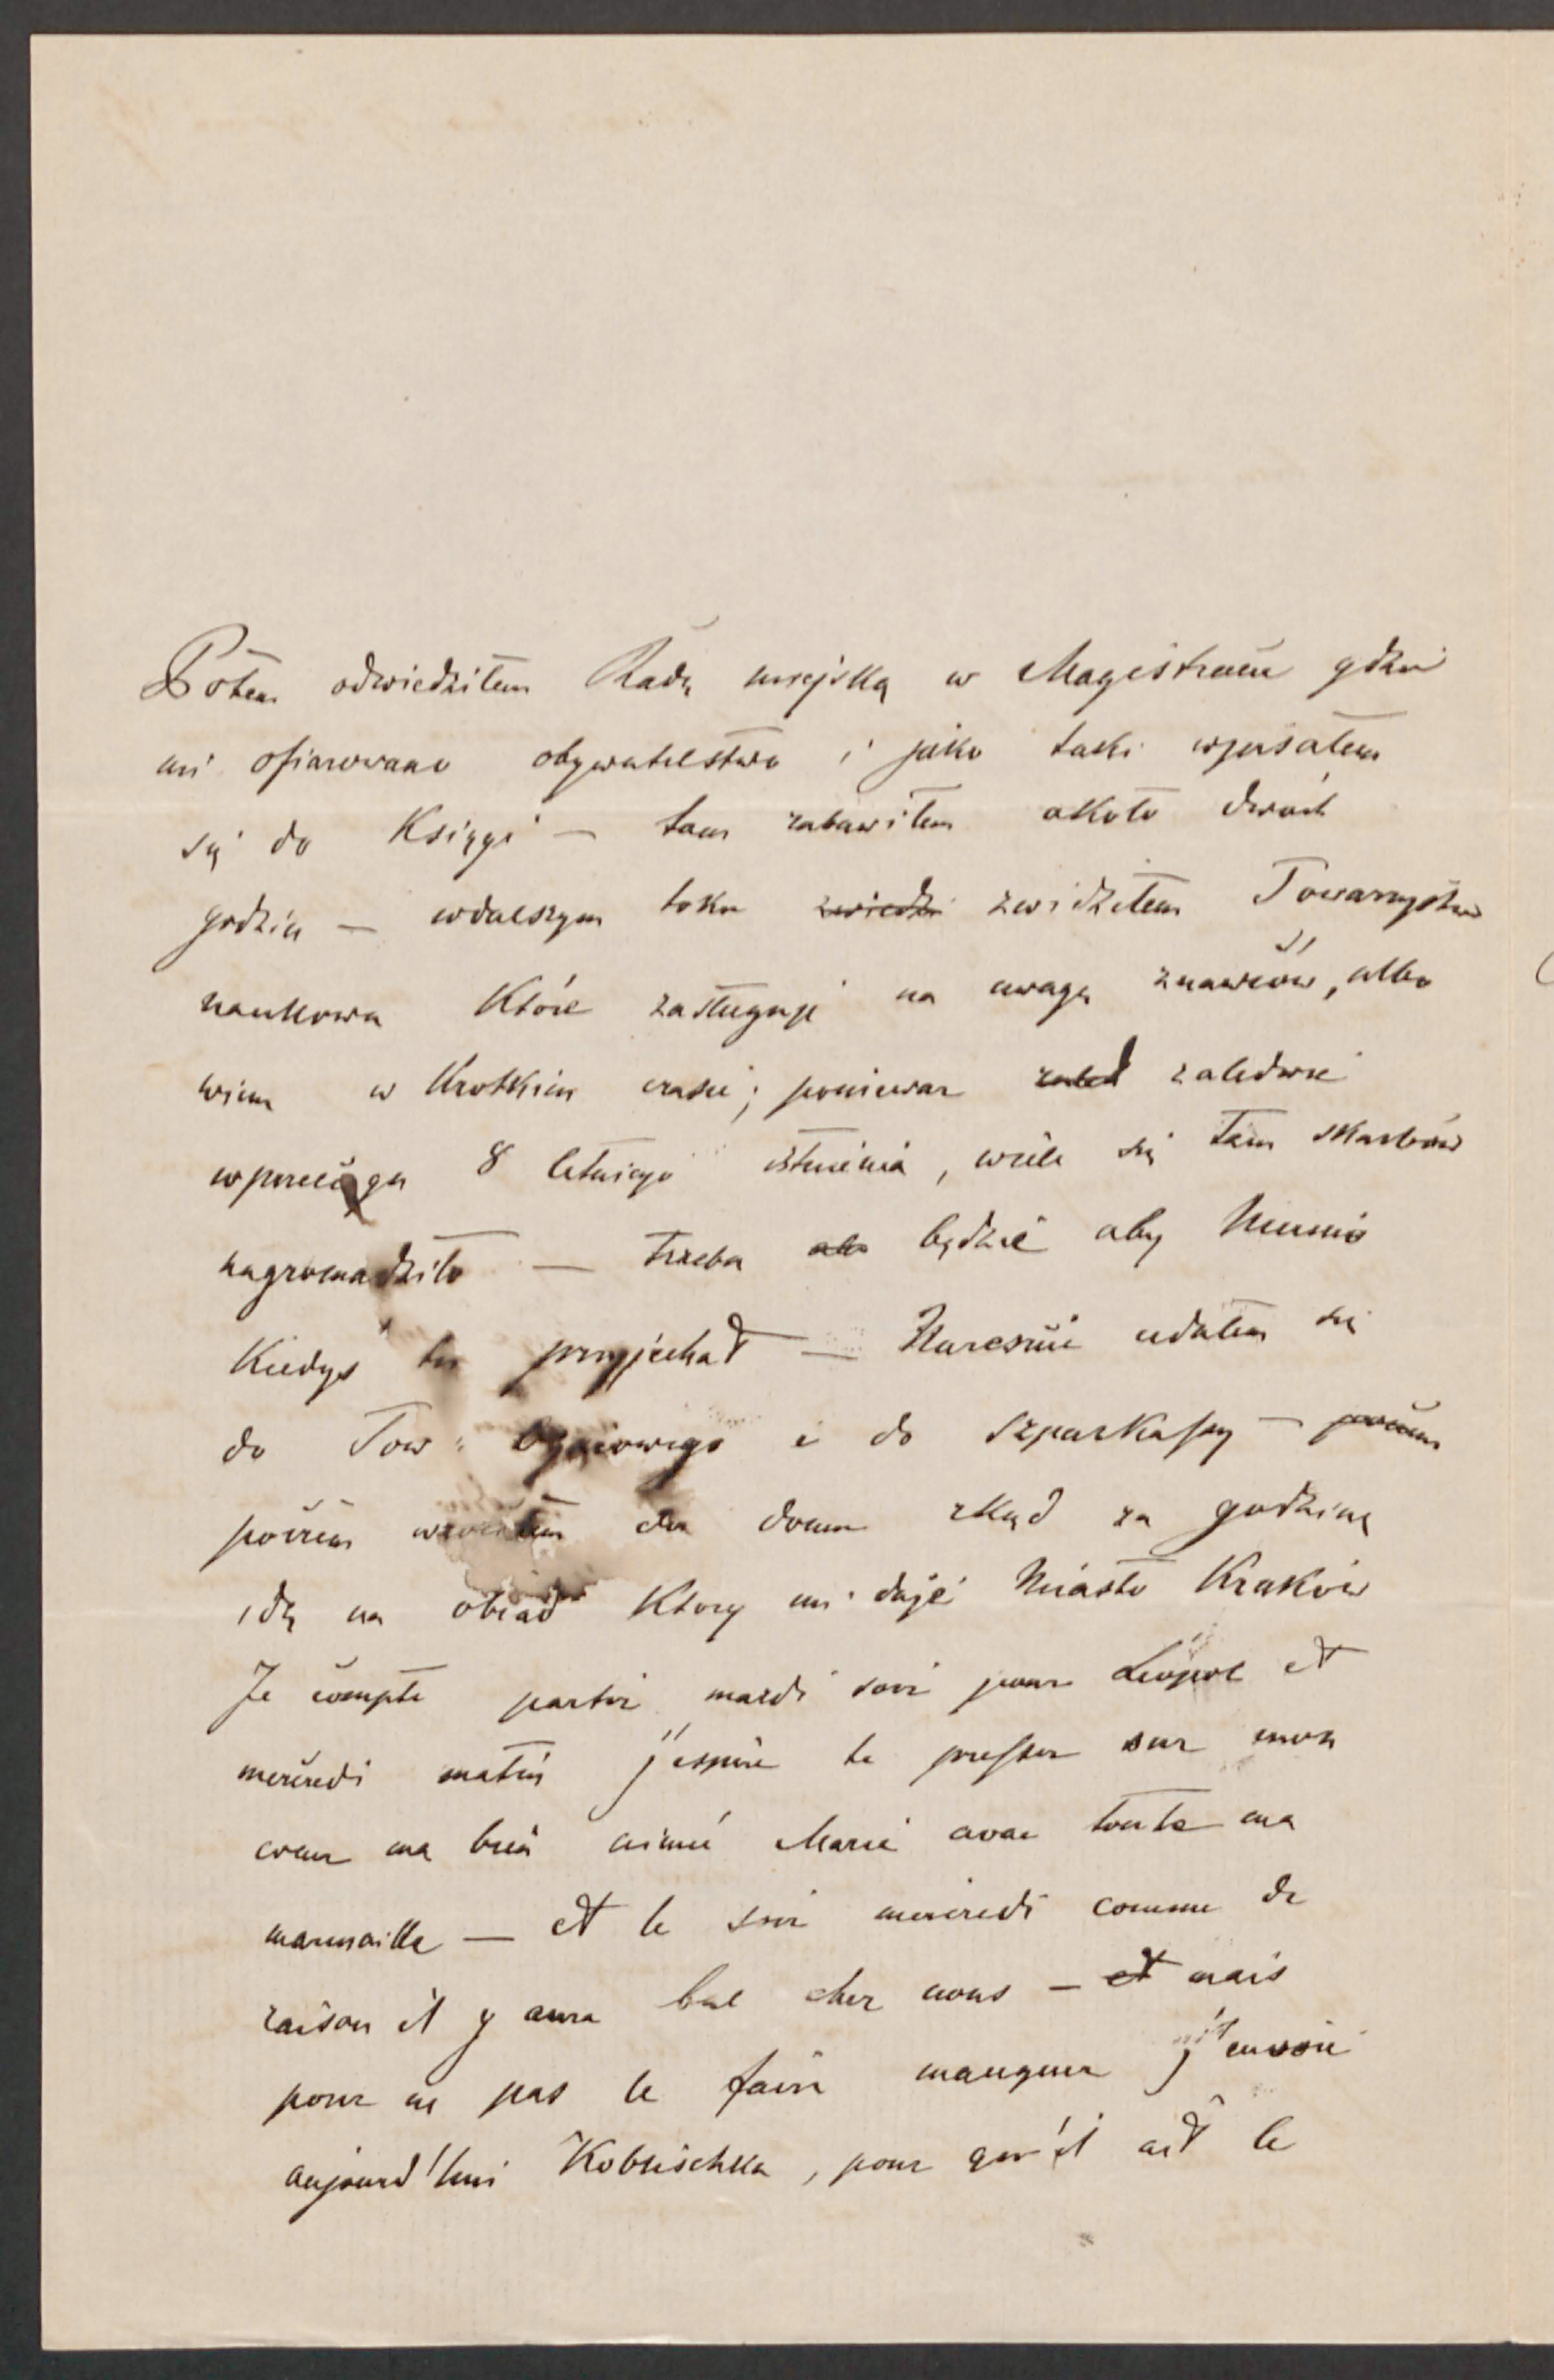 Potem odwiedziłem Radę miejską w Magistracie gdzie
mi ofiarowano obywatelstwo i jako taki wpisałem
się do Księgi — tam zabawiłem okoto dwóch
godzin — wdalszym toku zwiedzi zwidziłem Towarzystwo
naukowe które zasługuje na uwagę znawców, albo
wiem w krotkim czasie; ponieważ zaled zaledwie
wprzeciągu 8 letniego istnienia, wiele się tam skarbów
nagromadziło — trzeba będzie aby Munio
kiedyś tu przyjechał — Nareszcie udałem się
do Tow: Ogniowego i do Szparkassy —
poczem wróciłem do domu zkąd za godzinę
idę na obiad ktory mi daje Miasto Kraków
Je compte partir mardi soir pour Léopol et
mercredi matin j'espère te presser sur mon
coeur ma bien aimée Marie avec toute ma
marmaille — et le soir mercredi comme de
raison il y aura bal chez nous — et mais
pour ne pas le faire manquer j'envoie
aujourd'hui Koblischka, pour qu'il ait le